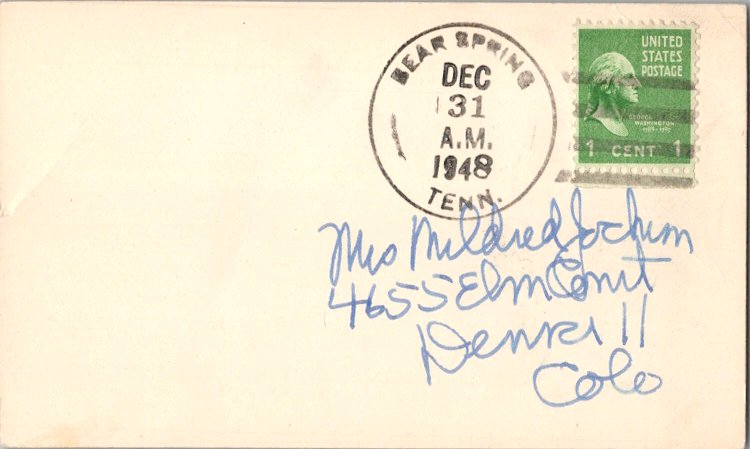 BEAR SPRING
DEC
31
A.M.
1948
TENN.
UNITED
STATES
POSTAGE
GEORGE
WASHINGTON
1789-1797
1 CENT 1
Mrs Mildred Jochum
4655 Elm Court
Denver 11
Colo